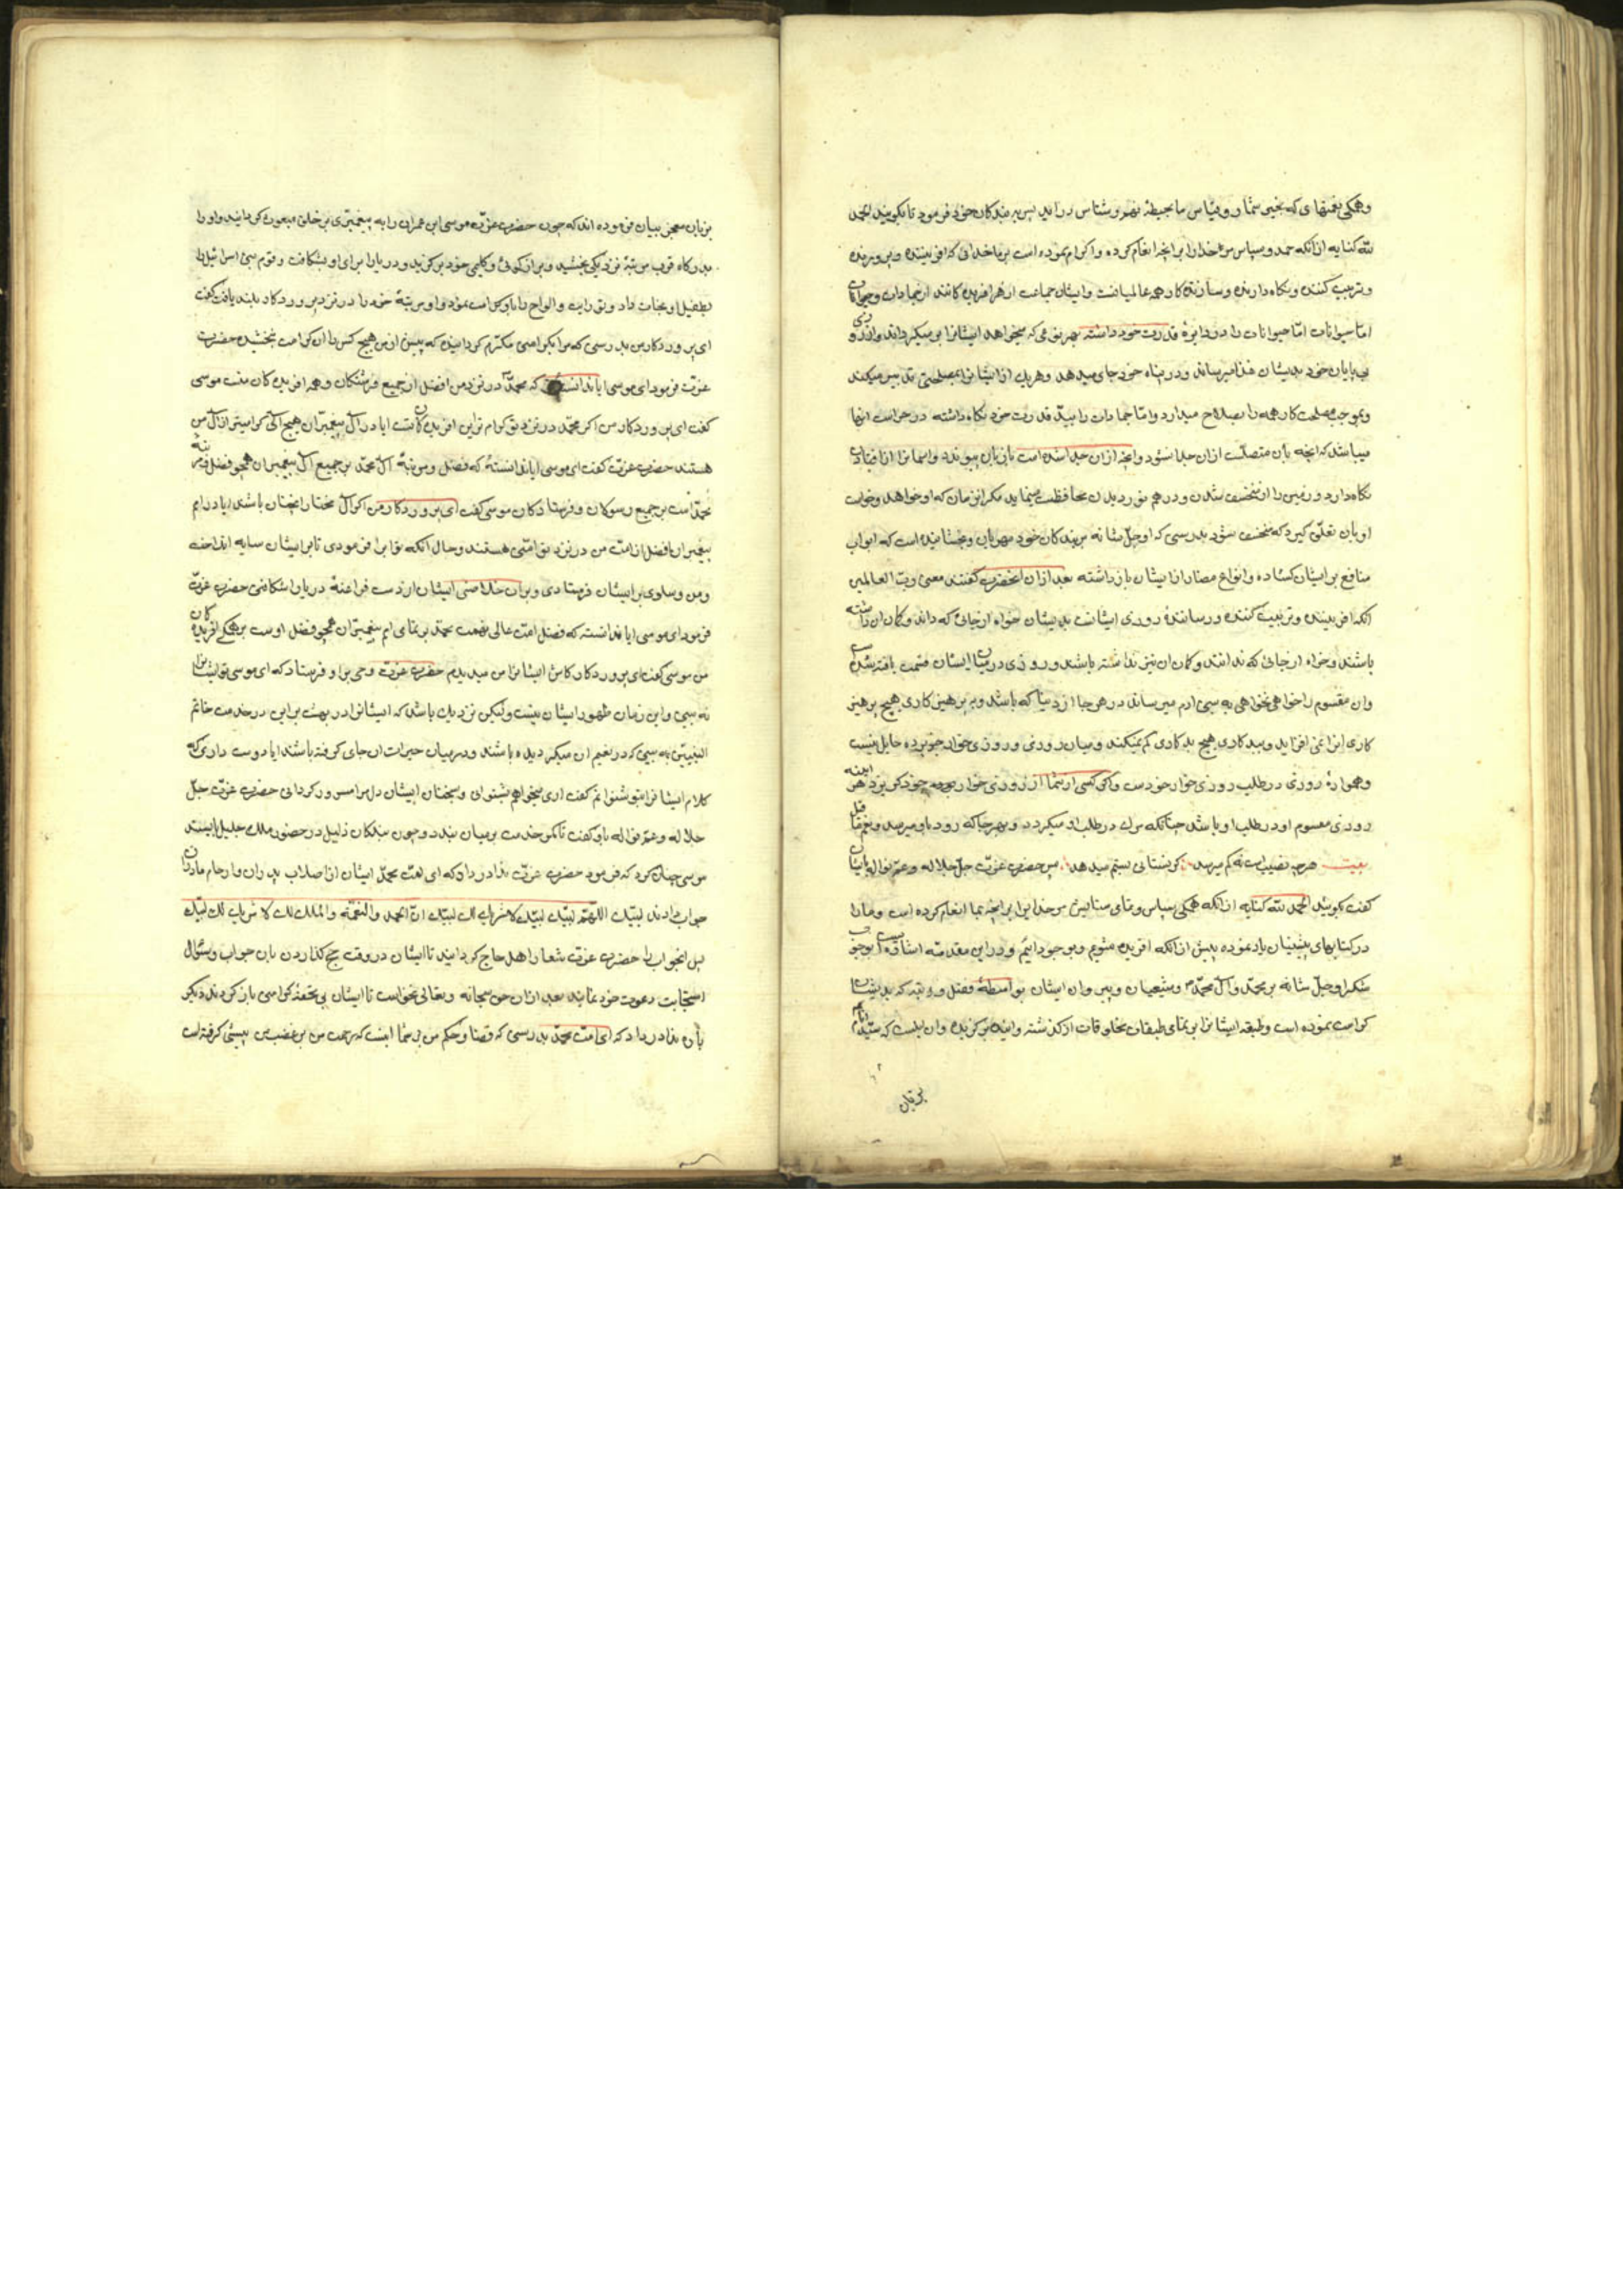 وهمکی نعمتهای که بغیر شمار و قیاس ما بحیطهٔ فهم و شناس در آید پس بر بندکان خود فرمود تا بکویند الحمد
لله کنایه از انکه حمد و سپاس مر خدا را بر انچه انعام کرده و اکرام نموده است بر ما خدائی که افریننده و پرورنده
و تربیت کننده و نکاه دارنده و سازندهٔ کار همه عالمیانست و ایشان جماعت از هر افریده کانند از جمادات و حیوانات
اما حیوانات اما حیوانات را در دایرهٔ قدرت خود داشته بهر نوعی که میخواهد ایشانرا بر میکرداند و از روزی
بی پایان خود بدیشان غذا میرساند و در پناه خود جای میدهد و هر یک از ایشانرا بمصلحتی تدبیر میکند
و بموجب مصلحت کار همه را بصلاح میدارد و اما جمادات را بید قدرت خود نکاه داشته در حراست انها
میباشد که انچه بان متصلست ازان جدا نشود و انچه ازان جدا شده است بان پیوندد و اسمانرا از افتادن
نکاه دارد و زمین را از منخسف شدن و درهم نوردیدن محافظت مینماید مکر انزمان که او خواهد و خواست
او بان تعلق کیرد که منخسف شود بدرستی که او جل شانه بر بندکان خود مهربان و بخشاینده است که ابواب
منافع بر ایشان کشاده و انواع مضار از ایشان باز داشته بعد ازان انحضرت کفتند معنی رب العالمین
انکه افریننده و تربیت کننده و رسانندهٔ روزی ایشانست بدیشان خواه از جائی که داند و کمان ان داشته
باشند و خواه از جائی که ندانند و کمان ان نیز نداشته باشند و روزی در میان ایشان قسمت یافته شده است
وان مقسوم را خواهی نخواهی به بنی ادم میرساند در هر جا از دنیا که باشد و بر پرهیزکاری هیچ پرهیز
کاری انرا نمی افزاید و ببدکاری هیچ بدکاری کم نمیکند و میان روزی و روزی خوار خود پرده حایل نیست
و همواره روزی در طلب روزی خوار خودست و اکر کسی از شما از روزی خوار بوده خود کریزد هر اینه
روزی مقسوم او در طلب او باشد چنانکه مرک در طلب او میکردد و بهر جا که رود باو میرسد و نعم ما قیل
بیت هر چه نصیب است نه کم میرسد کر نستانی بستم میدهد پس حضرت عزت جل جلاله و عم نواله بایشان
کفت بکویید الحمد لله کنایه از انکه همکی سپاس و تمامی ستایش مر خدایرا بر انچه بما انعام کرده است و ما را
در کتابهای پیشینیان یاد نموده پیش از انکه افریده شویم و بوجود اییم و در این مقدمه اشاره ایست بوجوب
شکر او جل شانه بر محمد و ال محمد و شیعیان و پیروان ایشان بواسطهٔ فضل و رتبه که بدیشان
کرامت نموده است و طبقه ایشانرا بر تمامی طبقات مخلوقات از کذشته و اینده بر کزیده وان اینست که سید انام
بر زبان
بزبان معجز بیان فرموده اند که چون حضرت عزت موسی ابن عمران را به پیغمبری بر خلق مبعوث کردانید و او را
بدرکاه قرب مرتبهٔ نزدیکی بخشید و براز کوئی و کلیمی خود بر کزید و دریا را برای او بشکافت و قوم بنی اسرائیل را
بطفیل او نجات داد و تورات و الواح را باو کرامت نمود و او مرتبهٔ خود را در نزد پروردکار بلند یافت کفت
ای پروردکار من بدرستی که مرا بکرامتی مکرم کردانیدی که پیش از من هیچ کس را ان کرامت نبخشیده حضرت
عزت فرمود ای موسی ایا ندانستهٔ که محمد در نزد من افضل از جمیع فرشتکان و همه افریده کان منست موسی
کفت ای پروردکار من اکر محمد در نزد تو کرام ترین افریده کانست ایا در ال پیغمبران هیچ الی کرامیتر از ال من
هستند حضرت عزت کفت ای موسی ایا ندانستهٔ که فضل و مرتبهٔ ال محمد بر جمیع ال پیغمبران همچو فضل و مرتبهٔ
محمد است بر جمیع رسولان و فرستادکان موسی کفت ای پروردکار من اکر ال مختار انچنان باشند ایا در امم
پیغمبران افضل از امت من در نزد تو امتی هستند و حال انکه تو ابر را فرمودی تا بر ایشان سایه انداخت
و من و سلوی بر ایشان فرستادی و برای خلاصی ایشان از دست فراعنهٔ دریا را شکافتی حضرت عزت
فرمود ای موسی ایا ندانسته که فضل امت عالی نعمت محمد بر تمامی امم پیغمبران همچو فضل اوست بر همکی افریده کان
من موسی کفت ای پروردکار کاش ایشانرا من میدیدم حضرت عزت وحی برا و فرستاد که ای موسی تو ایشانرا
نه بینی و این زمان ظهور ایشان نیست ولیکن نزدیک باشد که ایشانرا در بهشت برین در خدمت خاتم
النبیین به بینی که در نعیم ان میکردیده باشند و در میان خیرات ان جای کرفته باشند ایا دوست داری که
کلام ایشانرا بتو شنوانم کفت اری میخواهم شنوانی و سخنان ایشان دل مرا مسرور کردانی حضرت عزت جل
جلاله و عم نواله باو کفت تا کمر خدمت بر میان بندد و چون بندکان ذلیل در حضور ملک جلیل ایستد
موسی چنان کرد که فرمود حضرت عزت ندا در داد که ای امت محمد ایشان از اصلاب پدران و ارحام مادران
جواب دادند لبیک اللهم لبیک لبیک لا شریک لک لبیک ان الحمد والنعمة والملک لک لا شریک لک لبیک
پس انجواب را حضرت عزت شعار اهل حاج کردانید تا ایشان در وقت حج کذاردن بان جواب و سئوال
استجابت دعوت خود نمایند بعد ازان حق سبحانه و تعالی نخواست تا ایشان بی تحفهٔ کرامتی باز کردند دیکر
باره ندا در داد که ای امت محمد بدرستی که قضا و حکم من بر شما اینست که رحمت من بر غضب من پیشی کرفته است